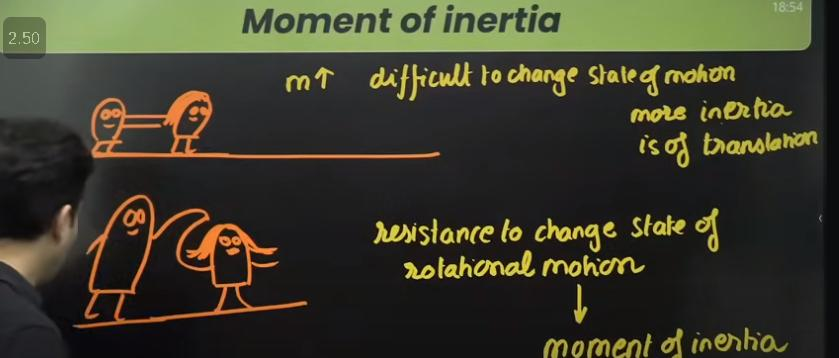 Moment of inertia
18:54
2.50
m↑ difficult to change state of motion
more inertia
is of translation
resistance to change state of
rotational motion
↓
moment of inertia